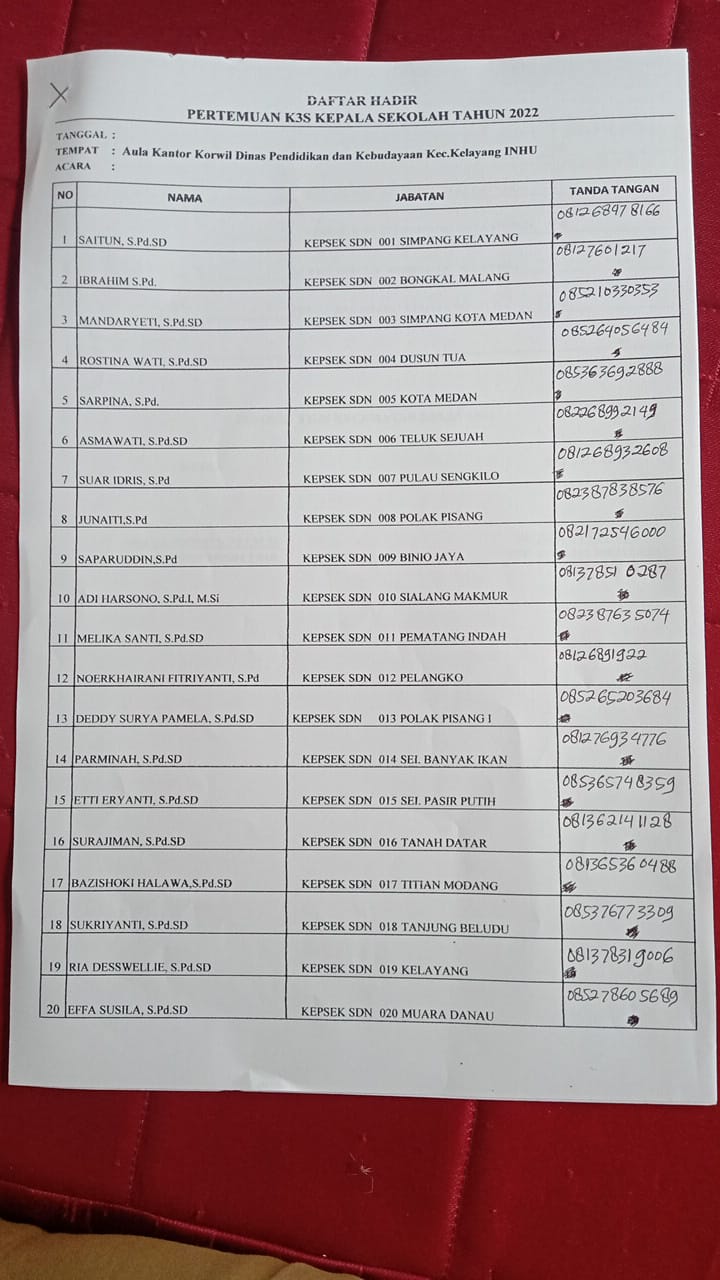 DAFTAR HADIR
PERTEMUAN K3S KEPALA SEKOLAH TAHUN 2022
TANGGAL :
TEMPAT : Aula Kantor Korwil Dinas Pendidikan dan Kebudayaan Kec.Kelayang INHU
ACARA :
NO NAMA JABATAN TANDA TANGAN
1 SAITUN, S.Pd.SD KEPSEK SDN 001 SIMPANG KELAYANG 081268978166
2 IBRAHIM S.Pd. KEPSEK SDN 002 BONGKAL MALANG 08127601217
3 MANDARYETI, S.Pd.SD KEPSEK SDN 003 SIMPANG KOTA MEDAN 085210330353
4 ROSTINA WATI, S.Pd.SD KEPSEK SDN 004 DUSUN TUA 085264056484
5 SARPINA, S.Pd. KEPSEK SDN 005 KOTA MEDAN 085363692888
6 ASMAWATI, S.Pd.SD KEPSEK SDN 006 TELUK SEJUAH 082268992149
7 SUAR IDRIS, S.Pd KEPSEK SDN 007 PULAU SENGKILO 081268932608
8 JUNAITI,S.Pd KEPSEK SDN 008 POLAK PISANG 082387838576
9 SAPARUDDIN,S.Pd KEPSEK SDN 009 BINIO JAYA 082172546000
10 ADI HARSONO, S.Pd.I, M.Si KEPSEK SDN 010 SIALANG MAKMUR 08137851 0287
11 MELIKA SANTI, S.Pd.SD KEPSEK SDN 011 PEMATANG INDAH 082387635074
12 NOERKHAIRANI FITRIYANTI, S.Pd KEPSEK SDN 012 PELANGKO 08126891922
13 DEDDY SURYA PAMELA, S.Pd.SD KEPSEK SDN 013 POLAK PISANG I 085265203684
14 PARMINAH, S.Pd.SD KEPSEK SDN 014 SEI. BANYAK IKAN 081276934776
15 ETTI ERYANTI, S.Pd.SD KEPSEK SDN 015 SEI. PASIR PUTIH 085365748359
16 SURAJIMAN, S.Pd.SD KEPSEK SDN 016 TANAH DATAR 081362141128
17 BAZISHOKI HALAWA,S.Pd.SD KEPSEK SDN 017 TITIAN MODANG 081365360488
18 SUKRIYANTI, S.Pd.SD KEPSEK SDN 018 TANJUNG BELUDU 085376773309
19 RIA DESSWELLIE, S.Pd.SD KEPSEK SDN 019 KELAYANG 081378319006
20 EFFA SUSILA, S.Pd.SD KEPSEK SDN 020 MUARA DANAU 085278605689